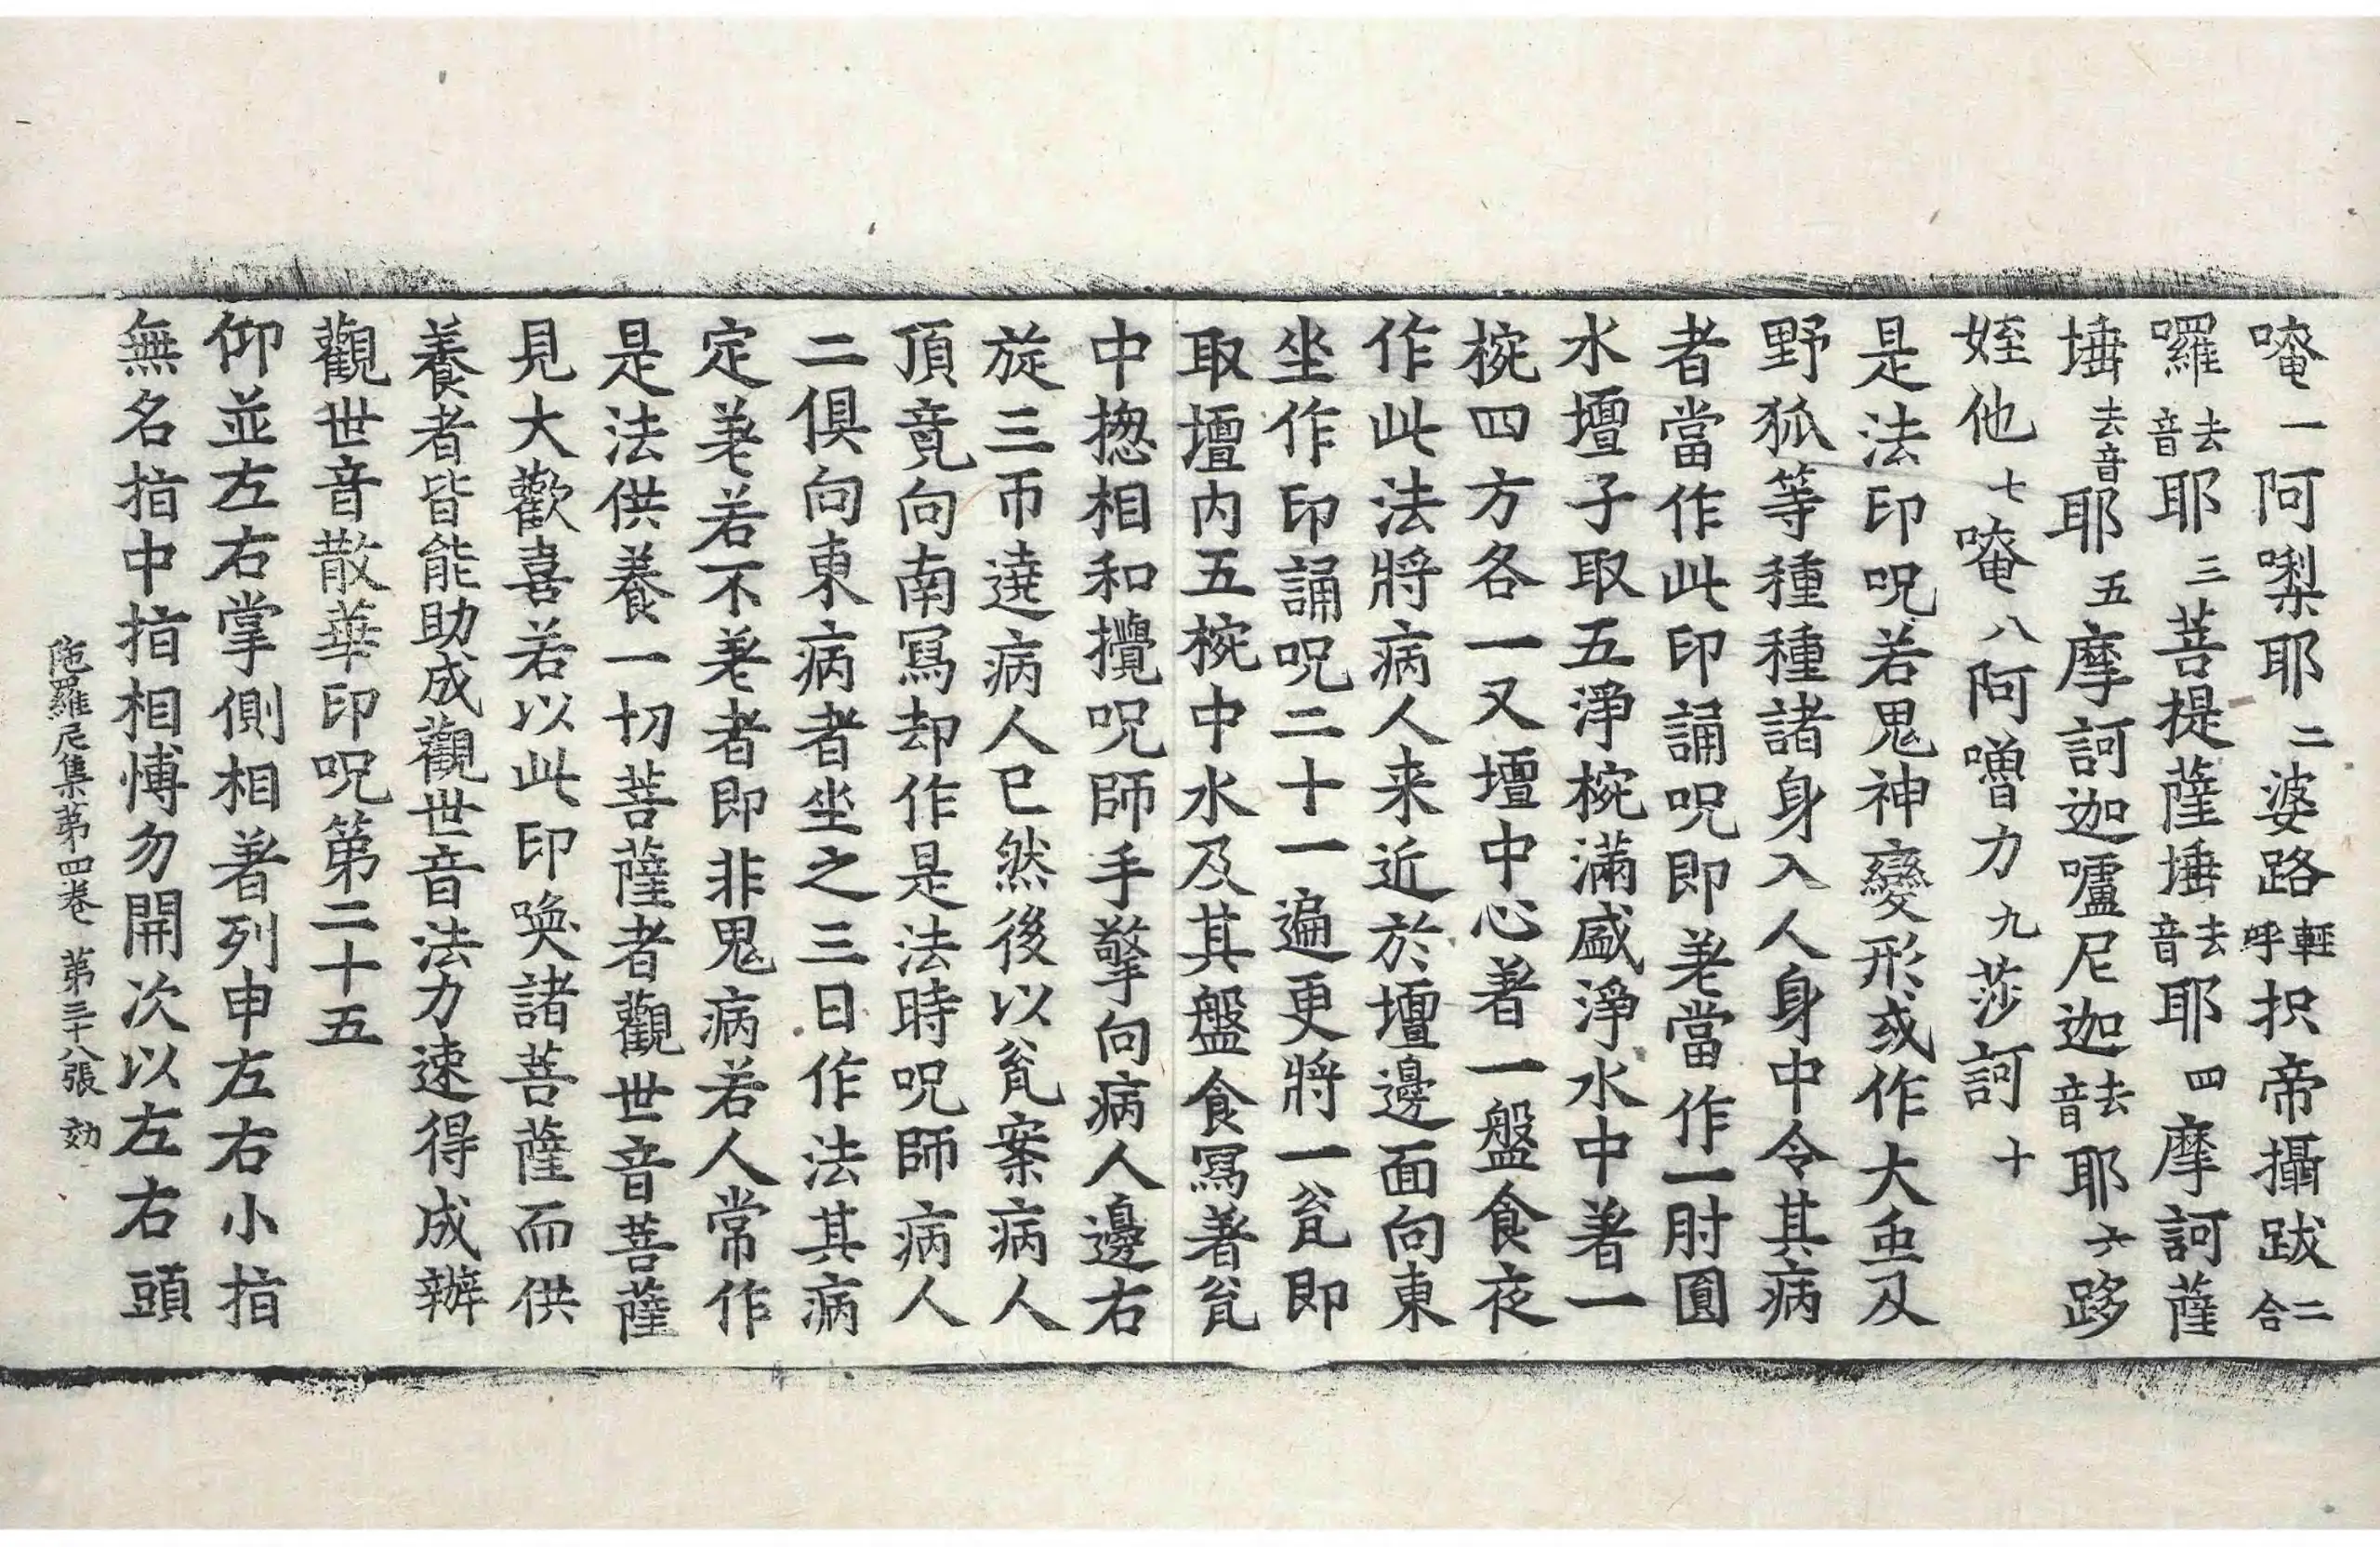 唵一阿㗚耶二婆路輕呼枳帝攝跋二合
囉去音耶三菩提薩埵去音耶四摩訶薩
埵去音耶五摩訶迦嚧尼迦去音耶六跢
姪他七唵八阿嚕力九莎訶十
是法印呪若鬼神變形或作大虫及
野狐等種種諸身入人身中令其病
者當作此印誦呪即差當作一肘圓
水壇子取五淨椀滿盛淨水中著一
椀四方各一又壇中心著一盤食夜
作此法將病人来近於壇邊面向東
坐作印誦呪二十一遍更將一瓫即
取壇内五椀中水及其盤食寫著瓫
中揔相和攪呪師手擎向病人邊右
旋三帀遶病人已然後以瓫案病人
頂竟向南寫却作是法時呪師病人
二俱向東病者坐之三日作法其病
定差若不差者即非鬼病若人常作
是法供養一切菩薩者觀世音菩薩
見大歡喜若以此印喚諸菩薩而供
養者皆能助成觀世音法力速得成辦
觀世音散華印呪第二十五
仰並左右掌側相著列申左右小指
無名指中指相愽勿開次以左右頭
陁羅尼集第四卷 第三十八張 効